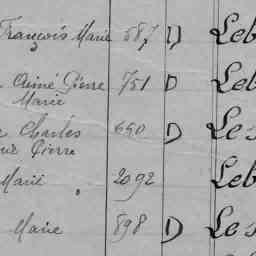 François Marie 587 D Leb
Aimé Pierre 751 D Leb
Marie
Charles 690 D Les
Pierre
Marie 2092 Leb
Marie 898 D Les